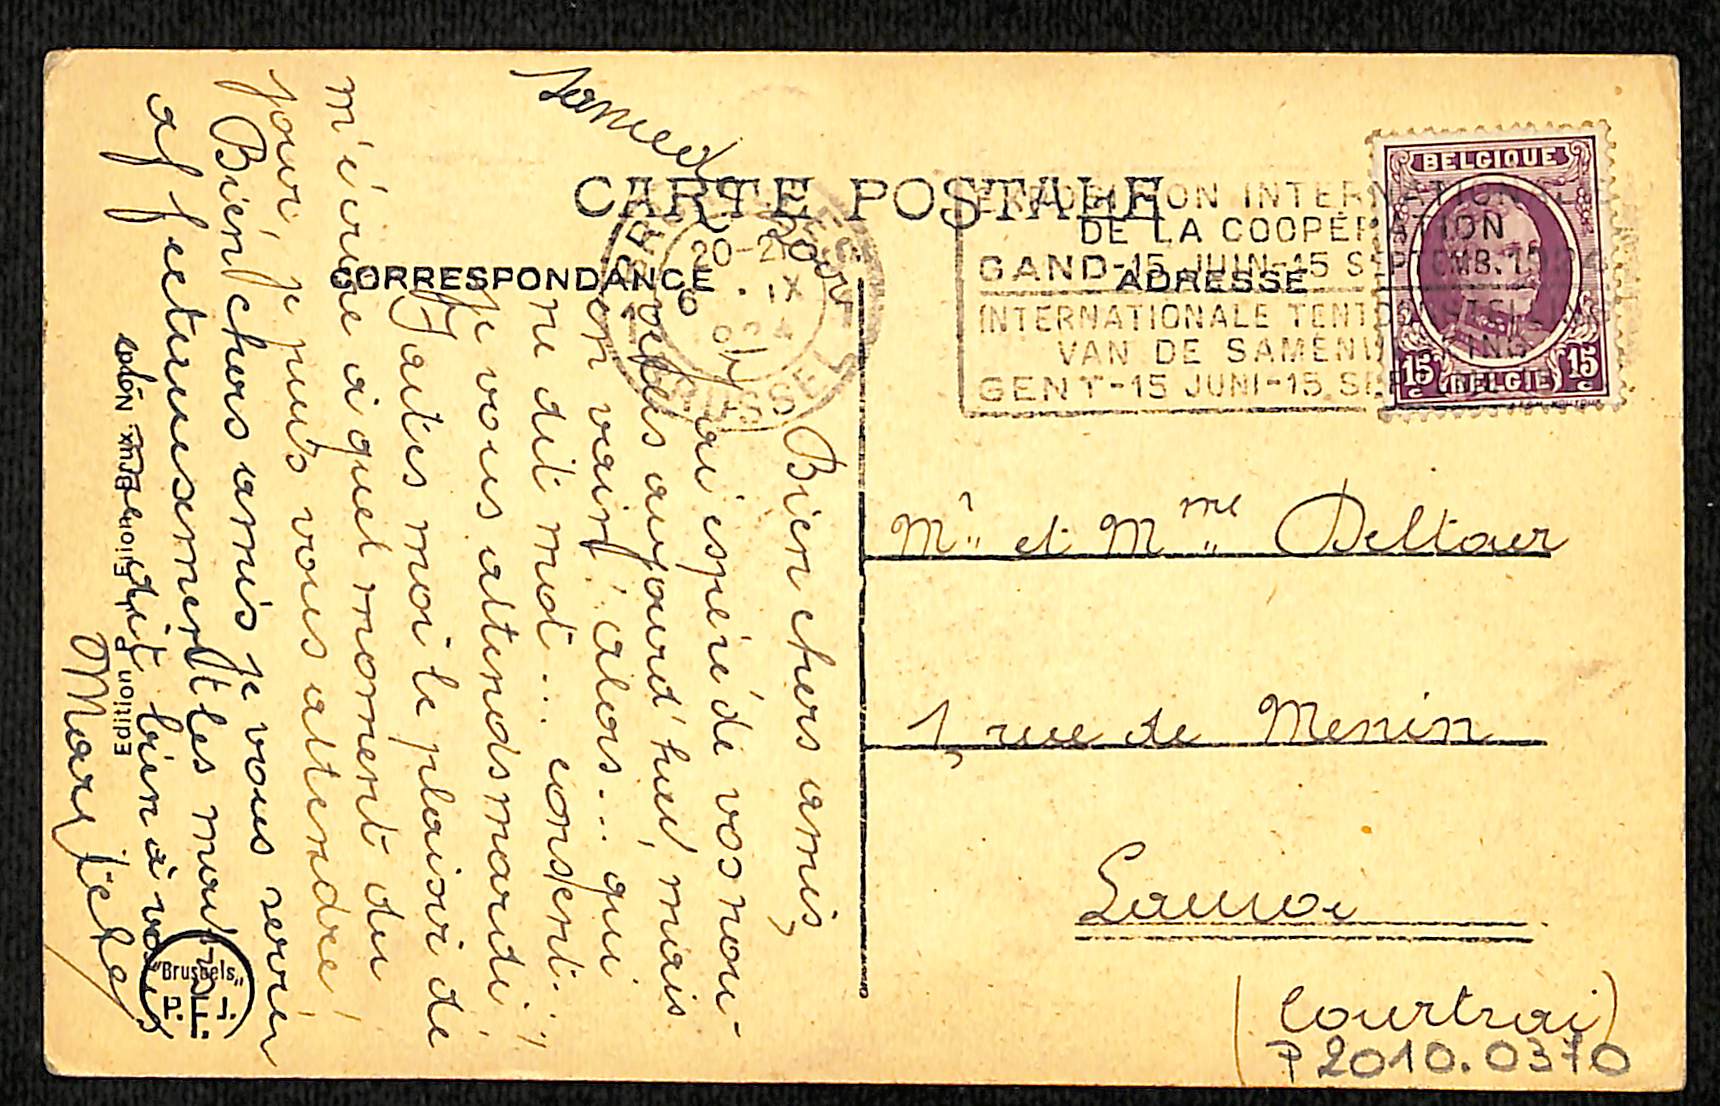 CARTE POSTALE
CORRESPONDANCE
ADRESSE
Samedi soir
Bien chers amis,
J'ai espéré de vos nou-
velles aujourd'hui, mais
en vain! alors... qui
ne dit mot... consent...,
je vous attends mardi!
Faites moi le plaisir de
m'écrire à quel moment du
jour, je puis vous attendre!
Bien chers amis je vous serre
affectueusement les mains
et dit bien à vous
Mary
BELGIQUE
15c BELGIE 15c
EXPOSITION INTERNATIONALE
DE LA COOPÉRATION
GAND-15 JUIN-15 SEPTEMB. 1924
INTERNATIONALE TENTOONSTELLING
VAN DE SAMENWERKING
GENT-15 JUNI-15 SEP
20-21
6 . IX
924
BRUSSEL
Mr et Mme Deltour
1, rue de Menin
Lauwe
(Courtrai)
P2010.0370
Edition
"Brussels"